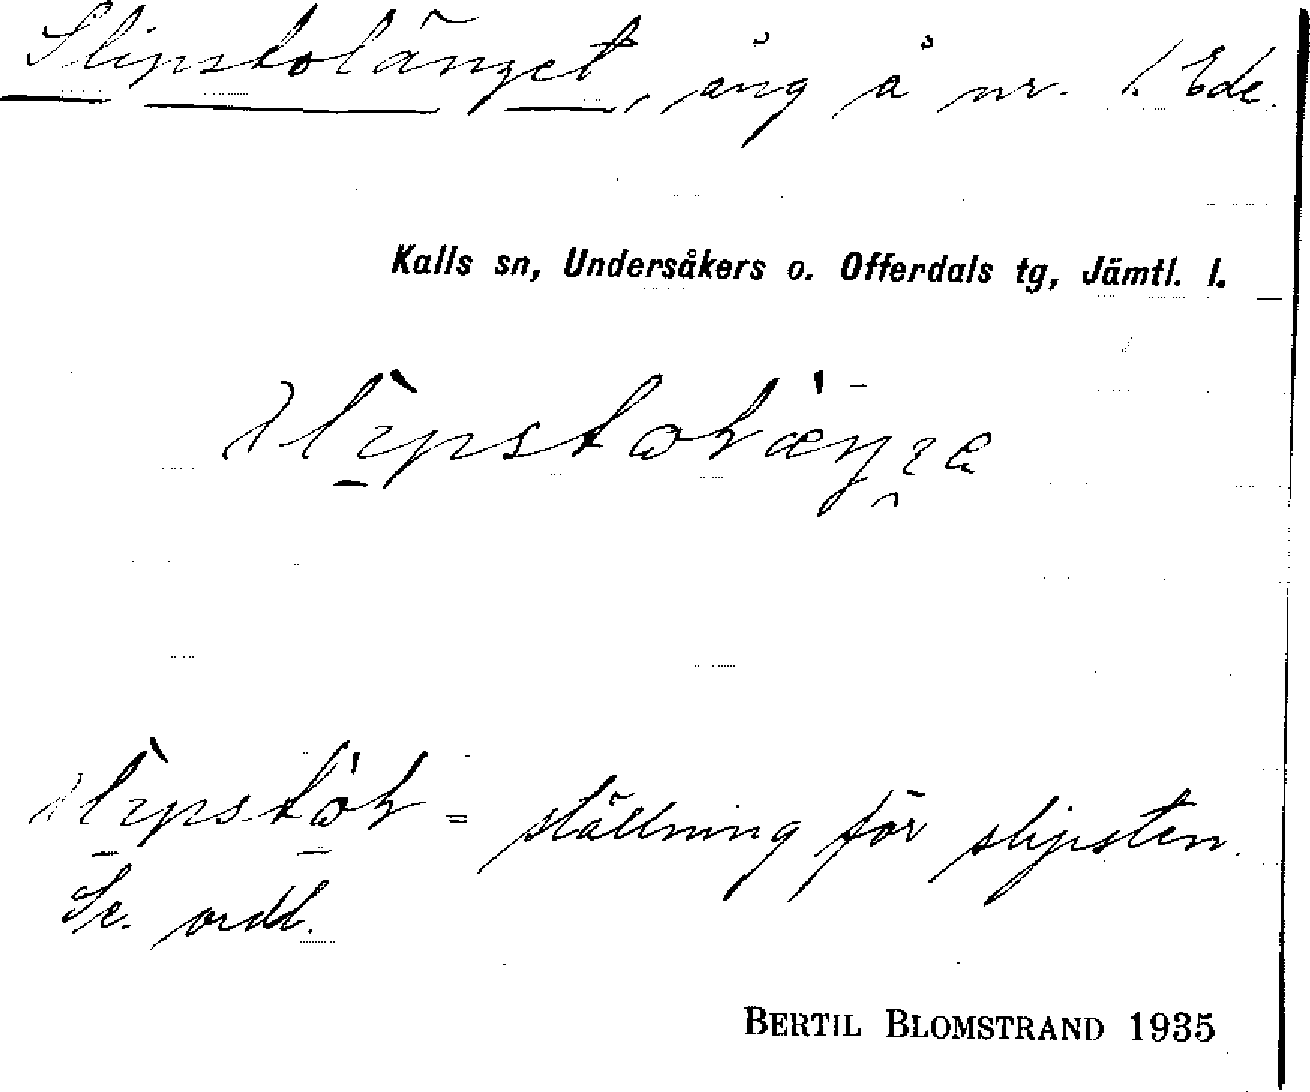 Slipstolänget, äng å nr. 1 Ede.
Kalls sn, Undersåkers o. Offerdals tg, Jämtl. l.
= ställning för slipsten.
Se ordb.
BERTIL BLOMSTRAND 1935